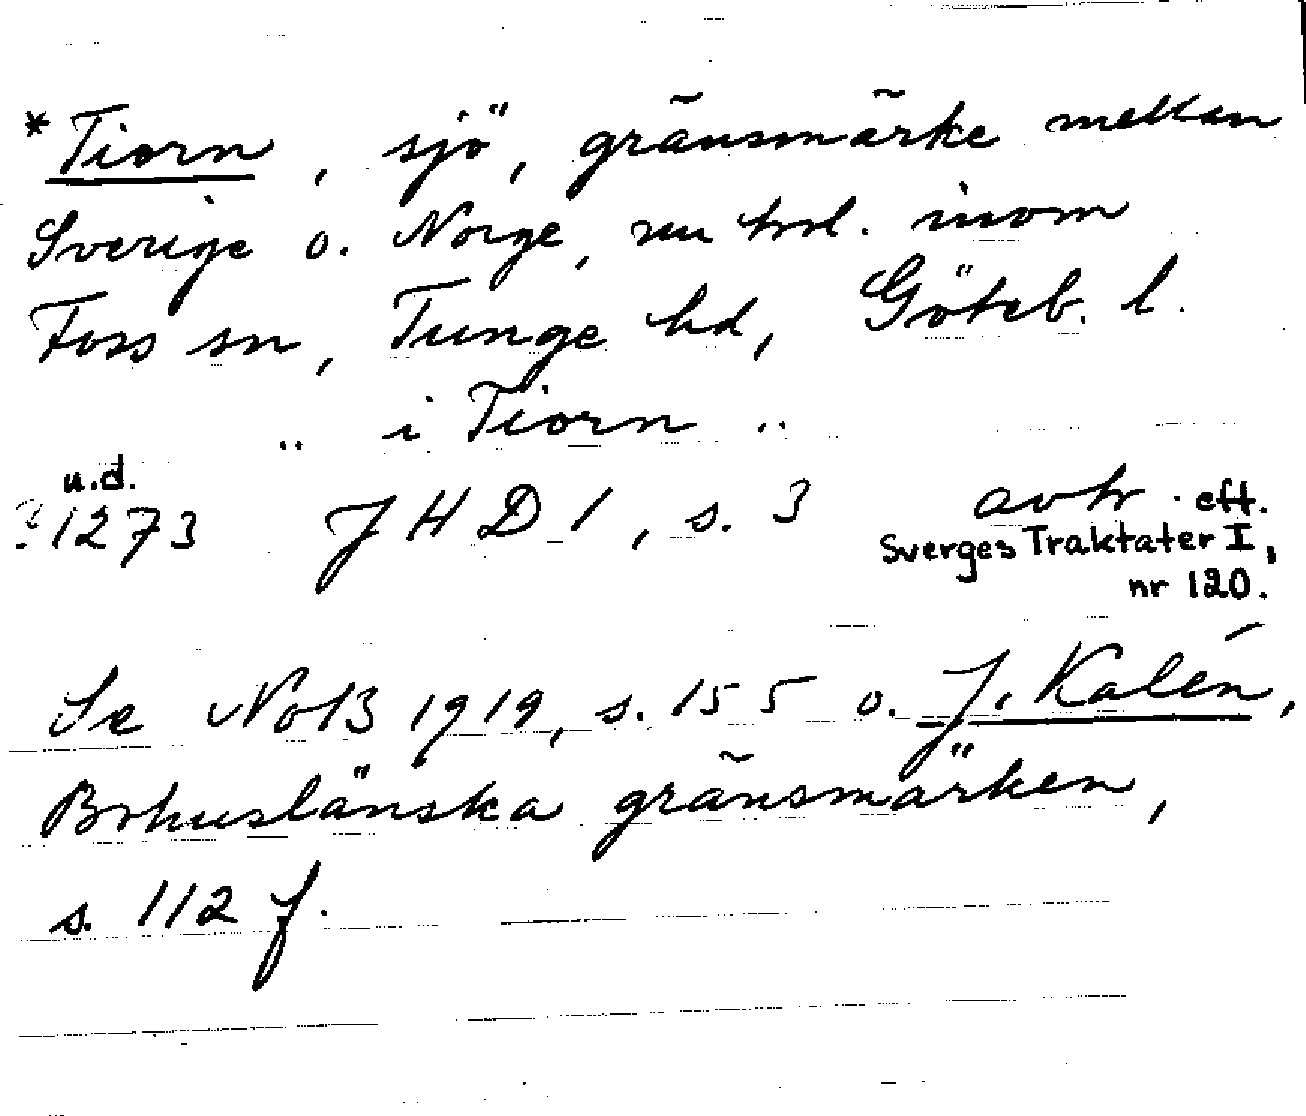 *Tiorn, sjö, gränsmärke mellan
Sverige o. Norge, nu trol. inom
Foss sn, Tunge hd, Göteb. l.
.. i Tiorn ..
u.d.
?1273 JHD 1, s. 3 avtr. eft.
Sverges Traktater I,
nr 120.
Se NoB 1919, s. 155 o. J. Kalén,
Bohuslänska gränsmärken,
s. 112 f.